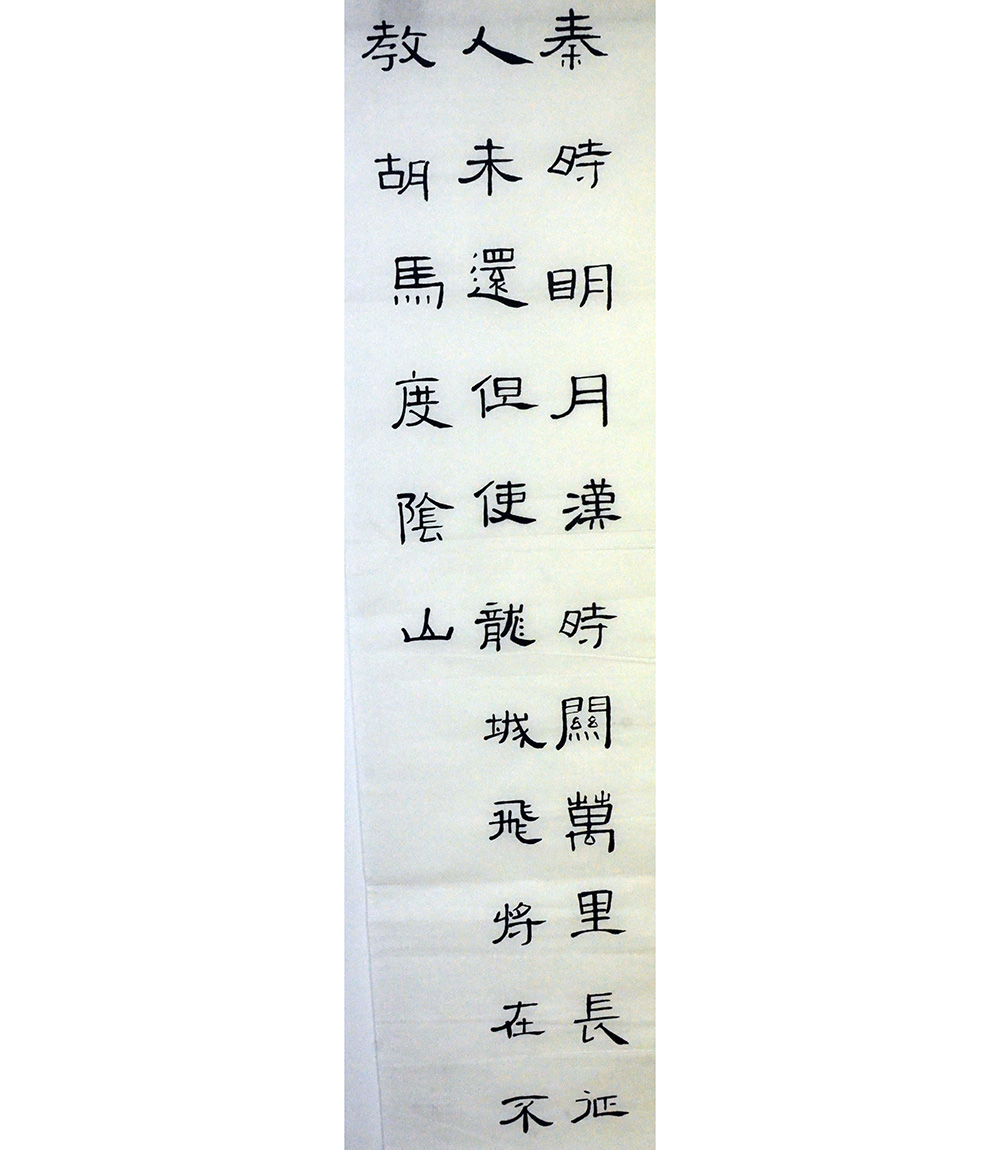 秦時明月漢時關萬里長征
人未還但使龍城飛將在不
教胡馬度陰山